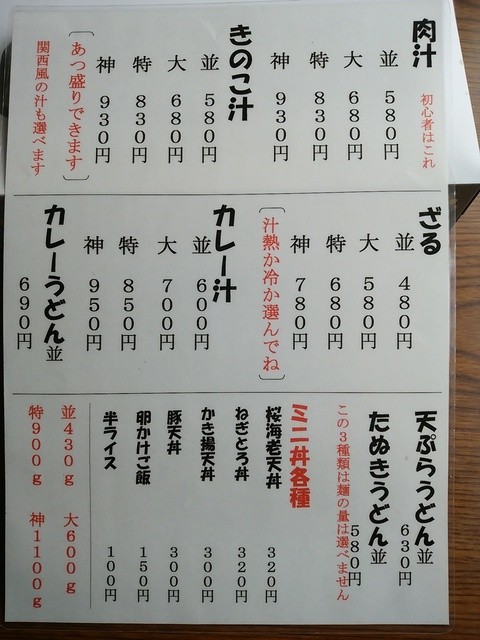 肉汁
初心者はこれ
並 580円
大 680円
特 830円
神 930円
きのこ汁
並 580円
大 680円
特 830円
神 930円
〔あつ盛りできます〕
関西風の汁も選べます
ざる
並 480円
大 580円
特 680円
神 780円
〔汁熱か冷か選んでね〕
カレー汁
並 600円
大 700円
特 850円
神 950円
カレーうどん 並
690円
天ぷらうどん 並
630円
たぬきうどん 並
580円
この3種類は麺の量は選べません
ミニ丼各種
桜海老天丼 320円
ねぎとろ丼 320円
かき揚天丼 300円
豚天丼 300円
卵かけご飯 150円
半ライス 100円
並430g 大600g
特900g 神1100g